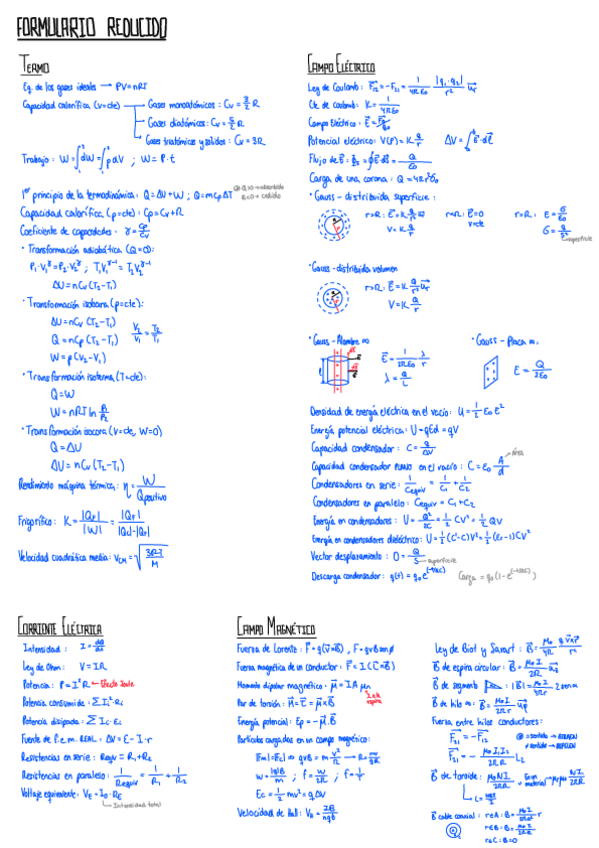 FORMULARIO REDUCIDO
TERMO
Eq. de los gases ideales → PV=nRT
Capacidad calorífica (v=cte) → Gases monoatómicos: Cv = 3/2 R
Gases diatómicos: Cv = 5/2 R
Gases triatómicos y sólidos: Cv = 3R
Trabajo: W = ∫dW = ∫p dV ; W = P·t
1er principio de la termodinámica: Q=ΔU+W ; Q=mcpΔT
Capacidad calorífica (p=cte): Cp=Cv+R
Coeficiente de capacidades: γ = Cp/Cv
· Transformación adiabática (Q=0):
P1·V1^γ = P2·V2^γ ; T1V1^γ-1 = T2V2^γ-1
ΔU = nCv (T2-T1)
· Transformación isobara (p=cte):
ΔU = nCv (T2-T1) V2/V1 = T2/T1
Q = nCp (T2-T1)
W = p (V2-V1)
· Transformación isoterma (T=cte):
Q=W
W = nRT ln P1/P2
· Transformación isocora (v=cte, W=0)
Q = ΔU
ΔU = nCv (T2-T1)
Rendimiento máquina térmica: η = W/Qpositivo
Frigorífico: K = |QF|/|W| = |QF|/|Qc|-|QF|
Velocidad cuadrática media: VCM = √3RT/M
CAMPO ELÉCTRICO
Ley de Coulomb: F12 = -F21 = 1/4πε0 |q1·q2|/r² ur
Cte. de coulomb: K = 1/4πε0
Campo eléctrico: E =
Potencial eléctrico: V(P) = K q/r ΔV = ∫E·dl
Flujo de E: ΦE = ∮E·dS = Q/ε0
Carga de una corona: Q =
· Gauss - distribuida superficie:
V = K q/r
superficie
· Gauss - distribuida volumen
r>R: E = K Q/r² ur
V = K Q/r
· Gauss - Alambre ∞ · Gauss - Placa ∞.
E = 1/2πε0 λ/r
λ = Q/L
E = Q/2ε0
Densidad de energía eléctrica en el vacío: u = 1/2 ε0 E²
Energía potencial eléctrica: U = qEd = qV
Capacidad condensador: C = Q/ΔV
Capacidad condensador PLANO en el vacío: C = ε0 A/d
Área
Condensadores en serie: 1/Cequiv = 1/C1 + 1/C2
Condensadores en paralelo: Cequiv = C1+C2
Energía en condensadores: U = Q²/2C = 1/2 CV² = 1/2 QV
Energía en condensadores dieléctrico: U = 1/2 (C'-C)V² = 1/2 (εr-1)CV²
Vector desplazamiento: D = Q/S
superficie
Descarga condensador: q(t) = q0 e^(-t/RC) Carga = q0(1-e^(-t/RC))
CORRIENTE ELÉCTRICA
Intensidad: I = dQ/dt
Ley de Ohm: V=IR
Potencia: P=I²R ← Efecto Joule
Potencia consumida:
Potencia disipada:
Fuente de f.e.m. REAL: ΔV = E - I·r
Resistencias en serie: Requiv = R1+R2
Resistencias en paralelo: 1/Requiv = 1/R1 + 1/R2
Voltaje equivalente: VE = I0·RE
Intensidad total
CAMPO MAGNÉTICO
Fuerza de Lorentz: F = q(v×B), F = qvB senθ
Fuerza magnética de un conductor: F = I (L×B)
Momento dipolar magnético: μ = I A μn
Par de torsión: M = τ = μ×B
Energía potencial: Ep = -μ·B
Partículas cargadas en un campo magnético:
|Fm|=|Fc| ⇒ qvB = m v²/r
w = |q|B/m ; f = w/2π ; f = 1/T
Ec = 1/2 mv² = qΔV
Velocidad de Hall: VH =
Ley de Biot y Savart: B = μ0/4π q v×r/r²
B de espira circular: B = μ0 I/2R
B de segmento
B de hilo ∞: B = μ0 I/2πR
Fuerza entre hilos conductores:
F21 = -F12
B de toroide:
B cable coaxial:
r<C: B=0